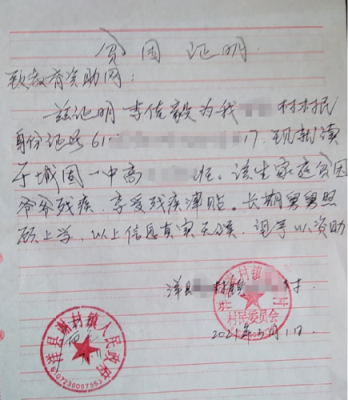 贫困证明
致教育资助网:
兹证明李佐毅为我 村村民
身份证号61 17,现就读
于城固一中高 班。该生家庭贫困
爷爷残疾,享受残疾津贴。长期舅舅照
顾上学,以上信息真实无误,望予以资助
洋县 村
2021年 月1日
村民委员会
村镇人民政府